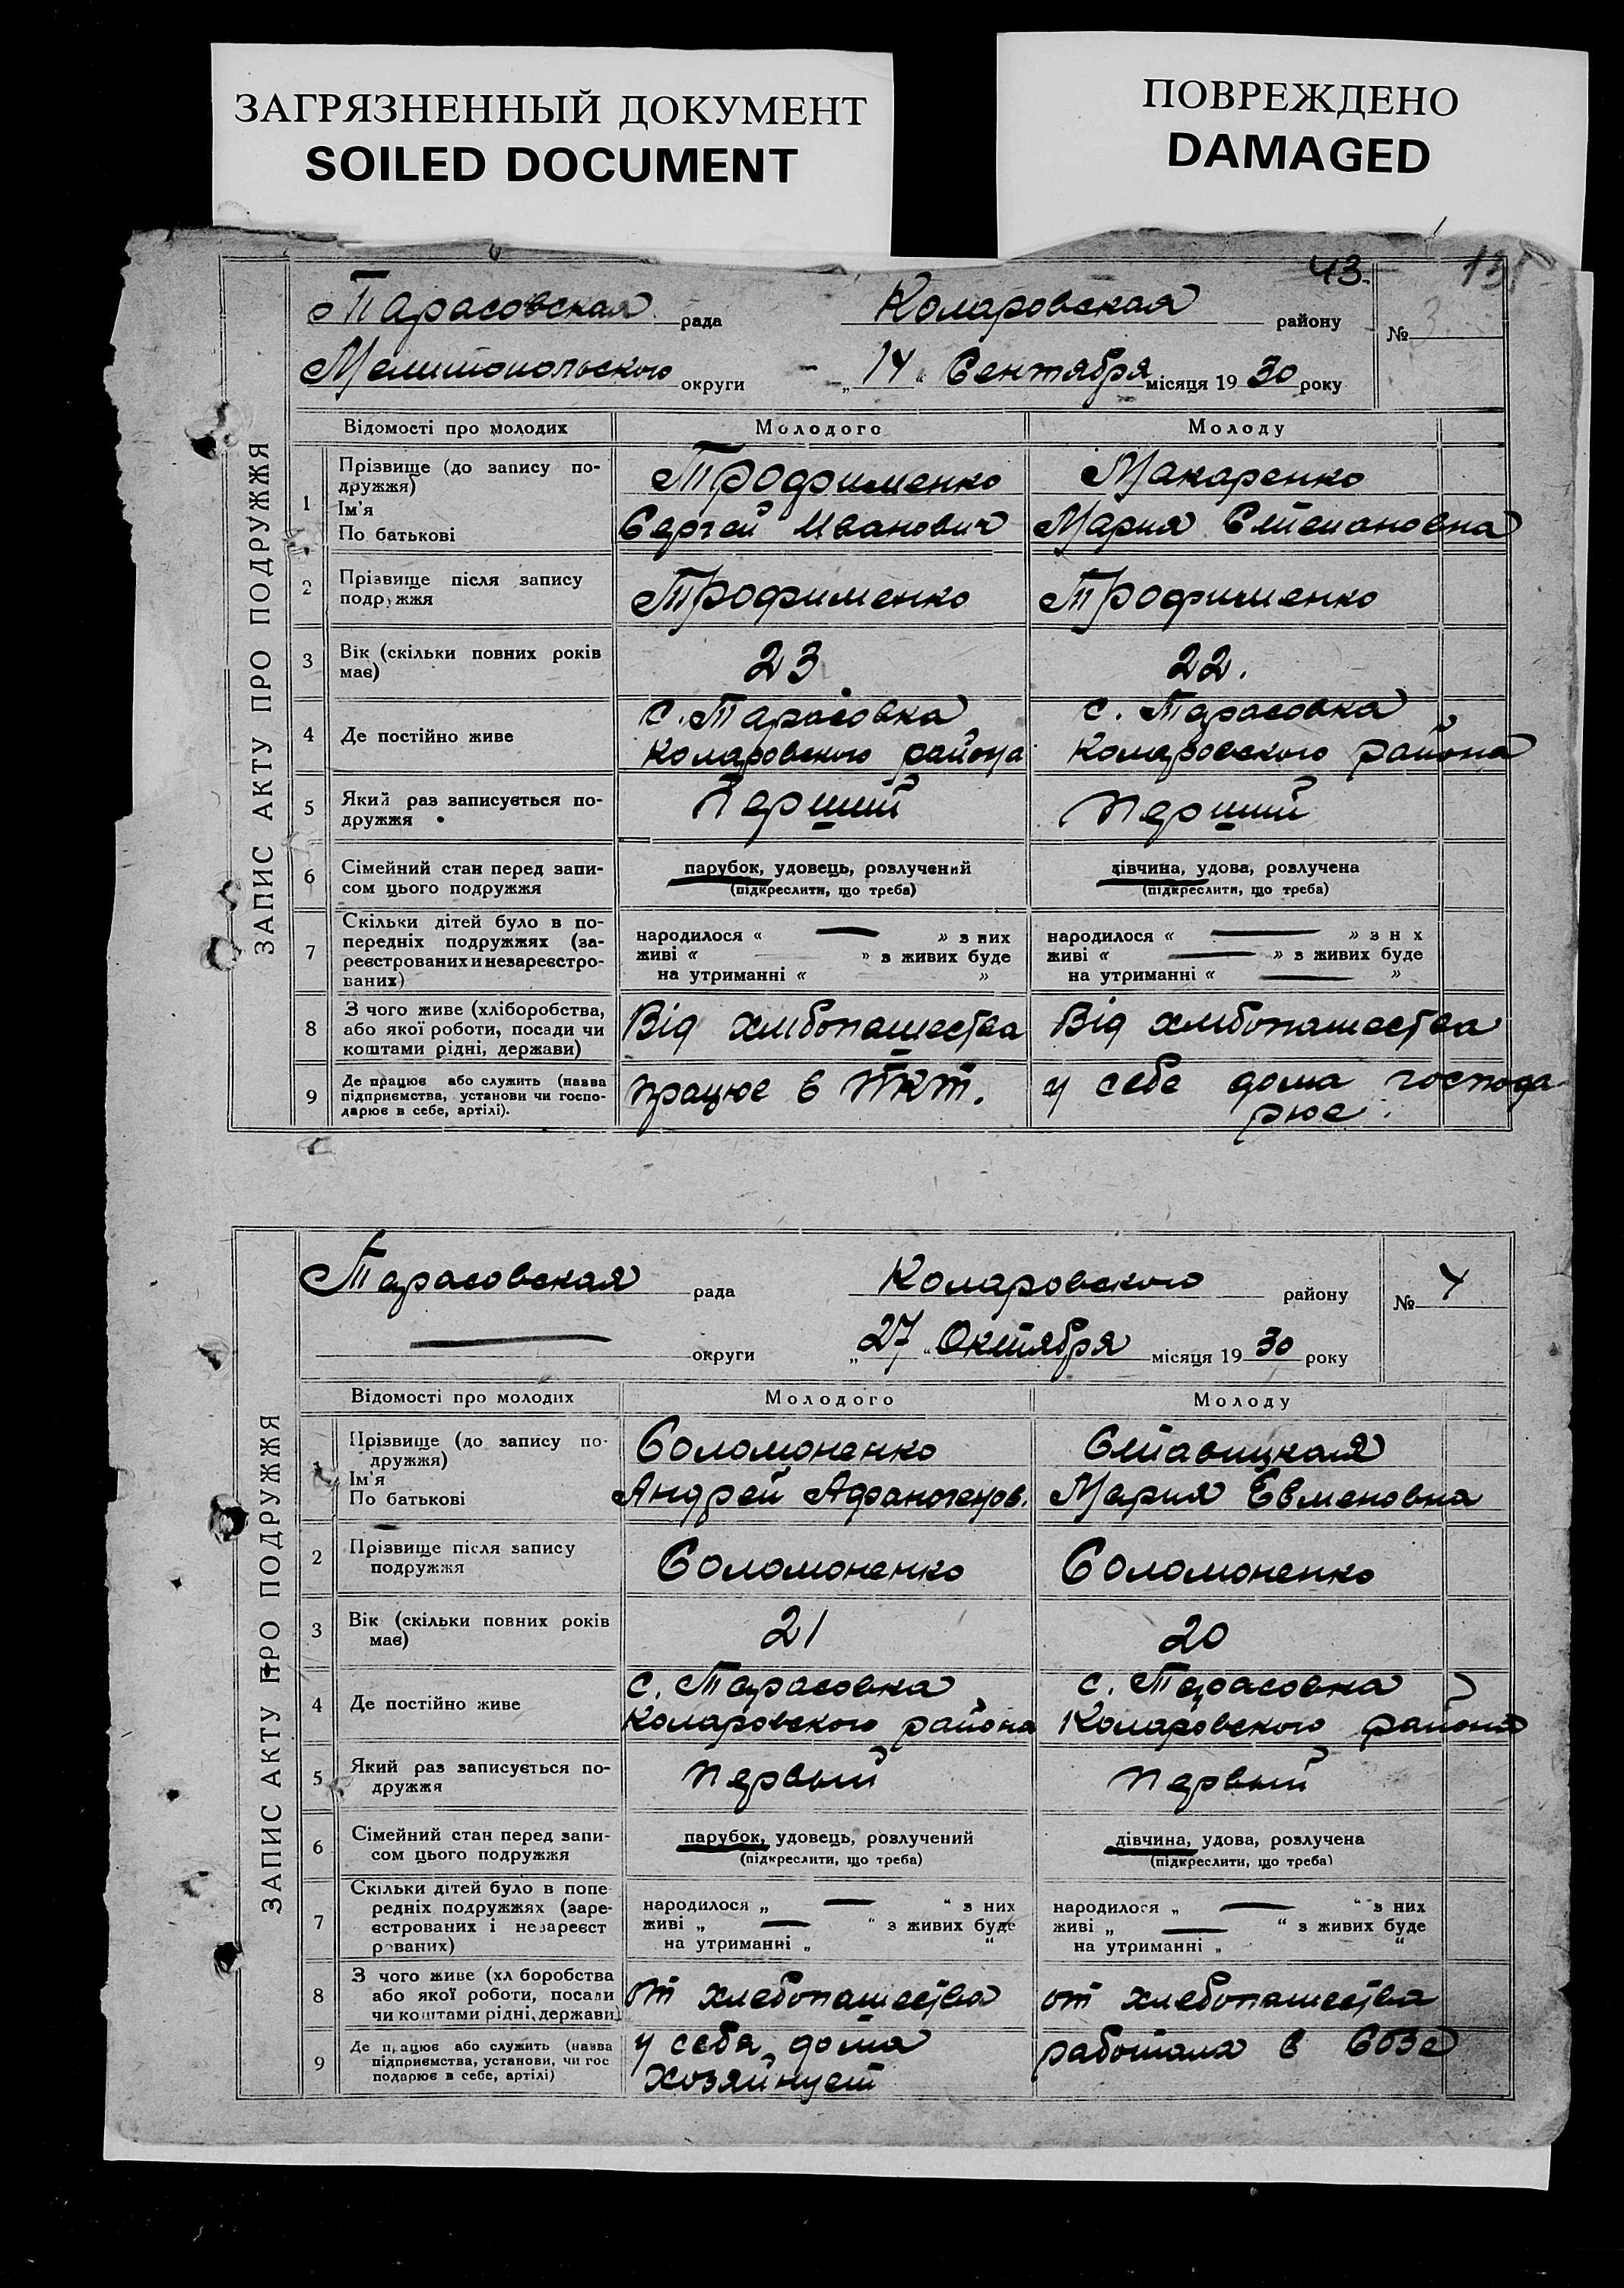 ЗАГРЯЗНЕННЫЙ ДОКУМЕНТ
SOILED DOCUMENT
ПОВРЕЖДЕНО
DAMAGED
43.
ЗАПИС АКТУ ПРО ПОДРУЖЖЯ
Тарасовская рада Коларовская району № 3
Мелитопольского округи „14“ Сентября місяця 1930 року
Відомості про молодих Молодого Молоду
1 Прізвище (до запису по- Трофименко Макаренко
дружжя)
Ім'я Сергей Иванович Мария Степановна
По батькові
2 Прізвище після запису Трофименко Трофименко
подружжя
3 Вік (скільки повних років 23 22.
має)
4 Де постійно живе с. Тарасовка с. Тарасовка
Коларовского района Коларовского района
5 Який раз записується по- Перший перший
дружжя
6 Сімейний стан перед запи- парубок, удовець, розлучений дівчина, удова, розлучена
сом цього подружжя (підкреслити, що треба) (підкреслити, що треба)
7 Скільки дітей було в по-
передніх подружжях (за- народилося « — » з них народилося « — » з н х
реєстрованих и незареєстро- живі « » з живих буде живі « — » з живих буде
ваних) на утриманні « » на утриманні « — »
8 З чого живе (хліборобства,
або якої роботи, посади чи Від хлібопашества Від хлібопашества
коштами рідні, держави)
9 Де працює або служить (назва працює в ТКТ. у себе дома господа
підприємства, установи чи госпо- рює.
дарює в себе, артілі).
ЗАПИС АКТУ ПРО ПОДРУЖЖЯ
Тарасовская рада Коларовского району № 4
— округи „27“ Октября місяця 1930 року
Відомості про молодих Молодого Молоду
1 Прізвище (до запису по- Соломоненко Ставицкая
дружжя)
Ім'я Андрей Афаногенов. Мария Евменовна
По батькові
2 Прізвище після запису Соломоненко Соломоненко
подружжя
3 Вік (скільки повних років 21 20
має)
4 Де постійно живе с. Тарасовка с. Тарасовка
Коларовского района Коларовского района
5 Який раз записується по- первый первый
дружжя
6 Сімейний стан перед запи- парубок, удовець, розлучений дівчина, удова, розлучена
сом цього подружжя (підкреслити, що треба) (підкреслити, що треба)
7 Скільки дітей було в попе
редніх подружжях (заре- народилося „ — “ з них народилося „ — “ з них
єстрованих і незареєст живі „ — “ з живих буде живі „ — “ з живих буде
рованих) на утриманні „ “ на утриманні „ “
8 З чого живе (хл боробства
або якої роботи, посади от хлебопашества от хлебопашества
чи коштами рідні, держави)
9 Де працює або служить (назва у себя дома работала в СОЗе
підприємства, установи, чи гос хозяйнует
подарює в себе, артілі)